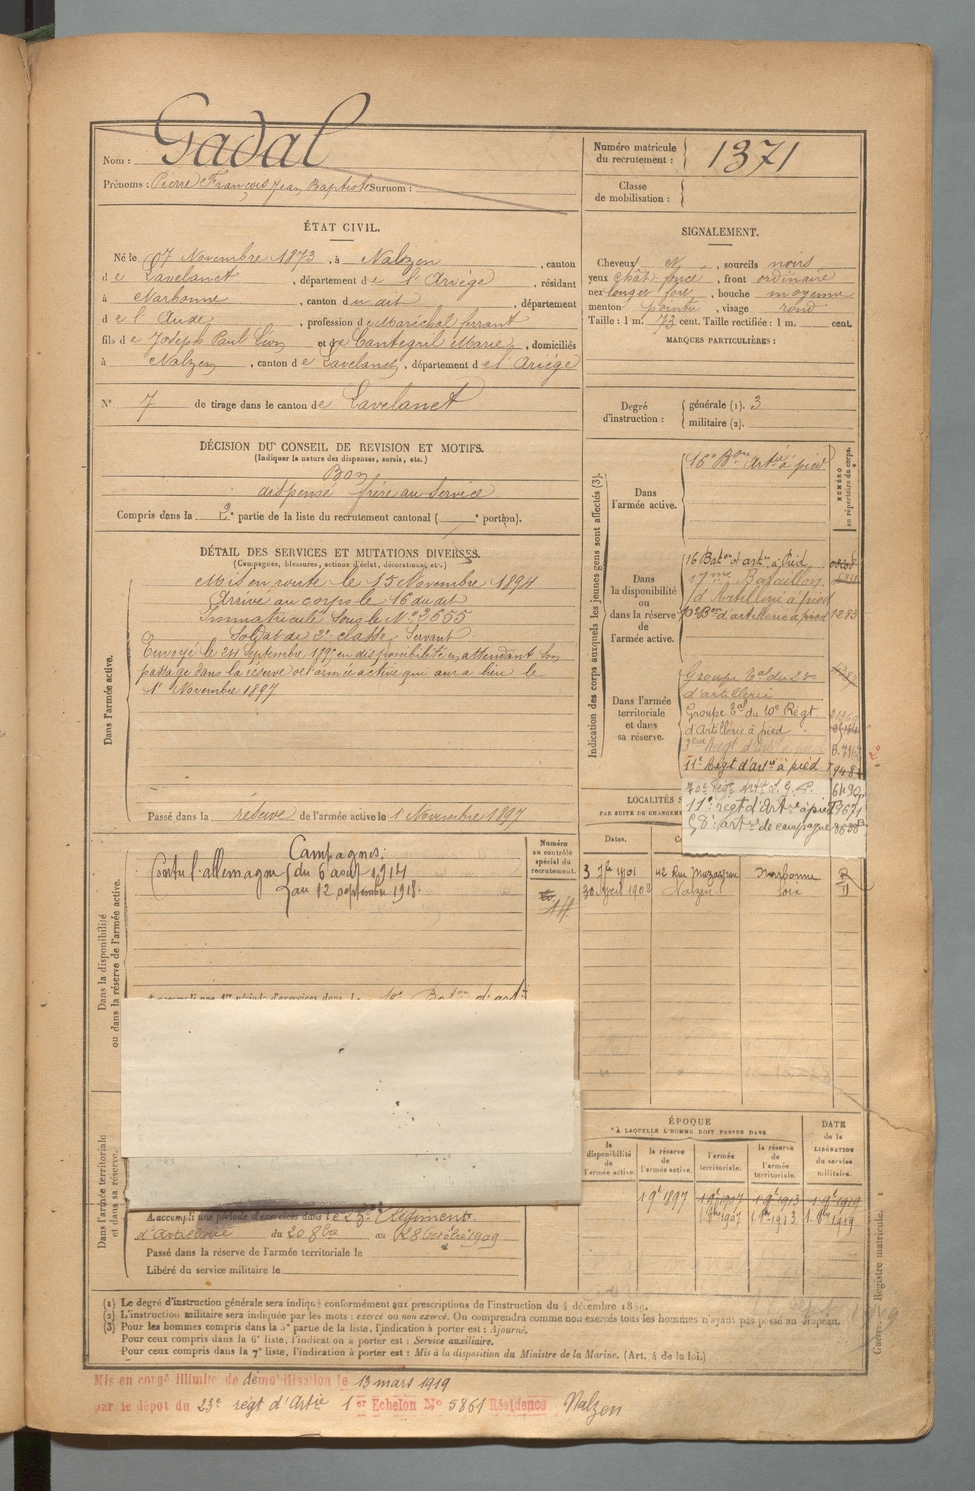 Nom : Gadal
Prénoms : Pierre François Jean Baptiste Surnom :
ÉTAT CIVIL.
Né le 7 Novembre 1873, à Nalzen, canton
de Lavelanet, département de l'Ariège, résidant
à Narbonne, canton du dit, département
de l'Aude, profession de Maréchal ferrant
fils de Joseph Paul Léon et de Cantegril Marie, domiciliés
à Nalzen, canton de Lavelanet, département de l'Ariège
N° 7 de tirage dans le canton de Lavelanet
DÉCISION DU CONSEIL DE REVISION ET MOTIFS.
(Indiquer la nature des dispenses, sursis, etc.)
Bon
dispensé frère au service
Compris dans la 2e partie de la liste du recrutement cantonal ( portion).
DÉTAIL DES SERVICES ET MUTATIONS DIVERSES.
(Campagnes, blessures, actions d'éclat, décorations, etc.)
Dans l'armée active.
Mis en route le 15 Novembre 1894
Arrivé au corps le 16 du dit
Immatriculé sous le N° 2655
Soldat de 2e classe Servant
Envoyé le 24 septembre 1895 en disponibilité en attendant son
passage dans la réserve de l'armée active qui aura lieu le
1er Novembre 1897
Passé dans la réserve de l'armée active le 1 Novembre 1897
Numéro
au contrôle
spécial du
recrutement.
Dans la disponibilité
ou dans la réserve de l'armée active.
Campagnes:
Contre l'allemagne du 6 août 1914
au 12 septembre 1918.
Dans l'armée territoriale
et dans sa réserve.
A accompli une période d'exercices dans le 23e Régiment
d'Artillerie du 20 8bre au 28 Octobre 1909
Passé dans la réserve de l'armée territoriale le
Libéré du service militaire le
Numéro matricule
du recrutement : 1371
Classe
de mobilisation :
SIGNALEMENT.
Cheveux N, sourcils noirs
yeux chât foncé, front ordinaire
nez long et fort, bouche moyenne
menton pointu, visage rond
Taille : 1 m. 73 cent. Taille rectifiée : 1 m. cent.
MARQUES PARTICULIÈRES :
Degré
d'instruction :
générale (1). 3
militaire (2).
Indication des corps auxquels les jeunes gens sont affectés (3).
NUMÉRO
au répertoire du corps.
Dans
l'armée active.
16e Bon Artie à pied
Dans
la disponibilité
ou
dans la réserve de
l'armée active.
16 Baton d'artie à Pied
17me Bataillon
d'Artillerie à pied
Bon d'artillerie à pied 1283
Dans l'armée
territoriale
et dans
sa réserve.
Groupe Tal du 23e
d'artillerie
Groupe Tal du 10e Régt
d'Artillerie à pied
11e Régt d'artie à pied
11e régt d'Artie à pied
artie de campagne
LOCALITÉS
PAR SUITE DE CHANGEME
Dates.
3 7bre 1901 42 Rue Narbonne
30 Avril 1902 Nalzen Foix
ÉPOQUE
À LAQUELLE L'HOMME DOIT PASSER DANS
DATE
de la
LIBÉRATION
du service
militaire.
la
disponibilité
de
l'armée active.
la réserve
de
l'armée active.
l'armée
territoriale.
la réserve
de
l'armée
territoriale.
1 9bre 1897 1 9bre 1907 1 9bre 1913 1 9bre 1919
1. 8bre 1907 1. 8bre 1913 1. 8bre 1919
(1) Le degré d'instruction générale sera indiqué conformément aux prescriptions de l'instruction du 4 décembre 1889.
(2) L'instruction militaire sera indiquée par les mots : exercé ou non exercé. On comprendra comme non exercés tous les hommes n'ayant pas passé au drapeau.
(3) Pour les hommes compris dans la 5e partie de la liste, l'indication à porter est : Ajourné.
Pour ceux compris dans la 6e liste, l'indication à porter est : Service auxiliaire.
Pour ceux compris dans la 7e liste, l'indication à porter est : Mis à la disposition du Ministre de la Marine. (Art. 4 de la loi.)
Registre matricule.
Mis en congé illimité de démobilisation le 13 mars 1919
par le dépôt du 23e régt d'Artie 1er Echelon No 5861 Résidence Nalzen